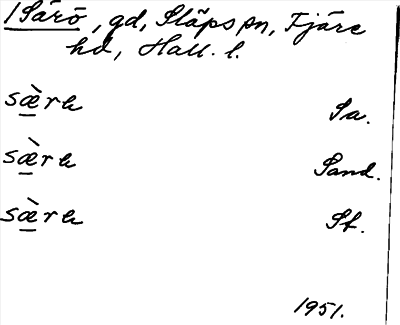 /Särö, gd, Släps sn, Fjäre
hd, Hall. l.
sæ̀rɐ Sa.
sæ̀rɐ Sand.
sæ̀rɐ St.
1951.